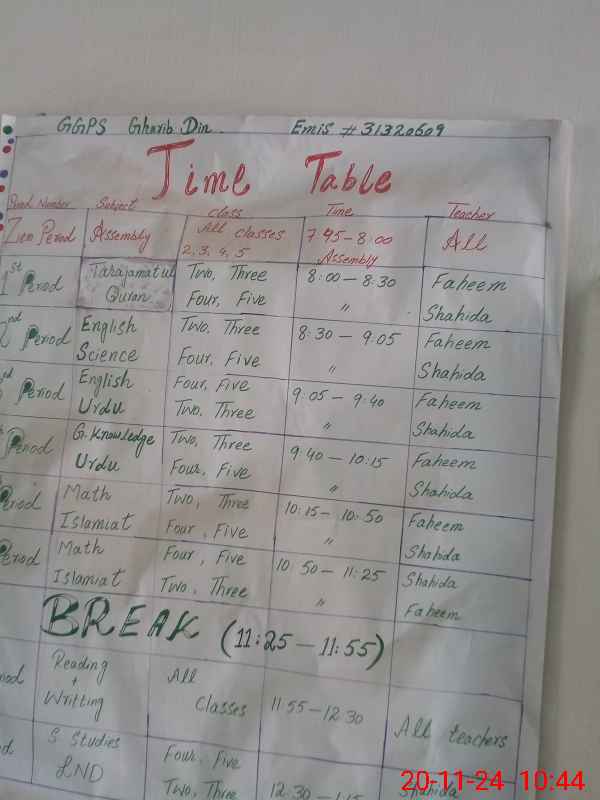 GGPS Gharib Din. Emis # 31320609
Time Table
Period Number Subject Class Time Teacher
Zero Period Assembly All classes 2, 3, 4, 5 7:45-8:00 Assembly All
1st Period Tarajamatul Quran Two, Three 8:00-8:30 Faheem
Four, Five " Shahida
2nd Period English Two, Three 8:30-9:05 Faheem
Science Four, Five " Shahida
Period English Four, Five 9:05-9:40 Faheem
Urdu Two, Three " Shahida
Period G.Knowledge Two, Three 9:40-10:15 Faheem
Urdu Four, Five " Shahida
Period Math Two, Three 10:15-10:50 Faheem
Islamiat Four, Five " Shahida
Period Math Four, Five 10 50-11:25 Shahida
Islamiat Two, Three " Faheem
BREAK (11:25-11:55)
Reading + Writting All Classes 11:55-12:30 All teachers
S Studies Four, Five
LND Two, Three 12:30-1:15 Shahida
20-11-24 10:44